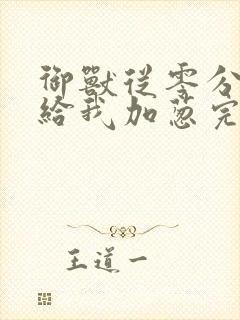 御獸從零分
給我加蔥完
王道一